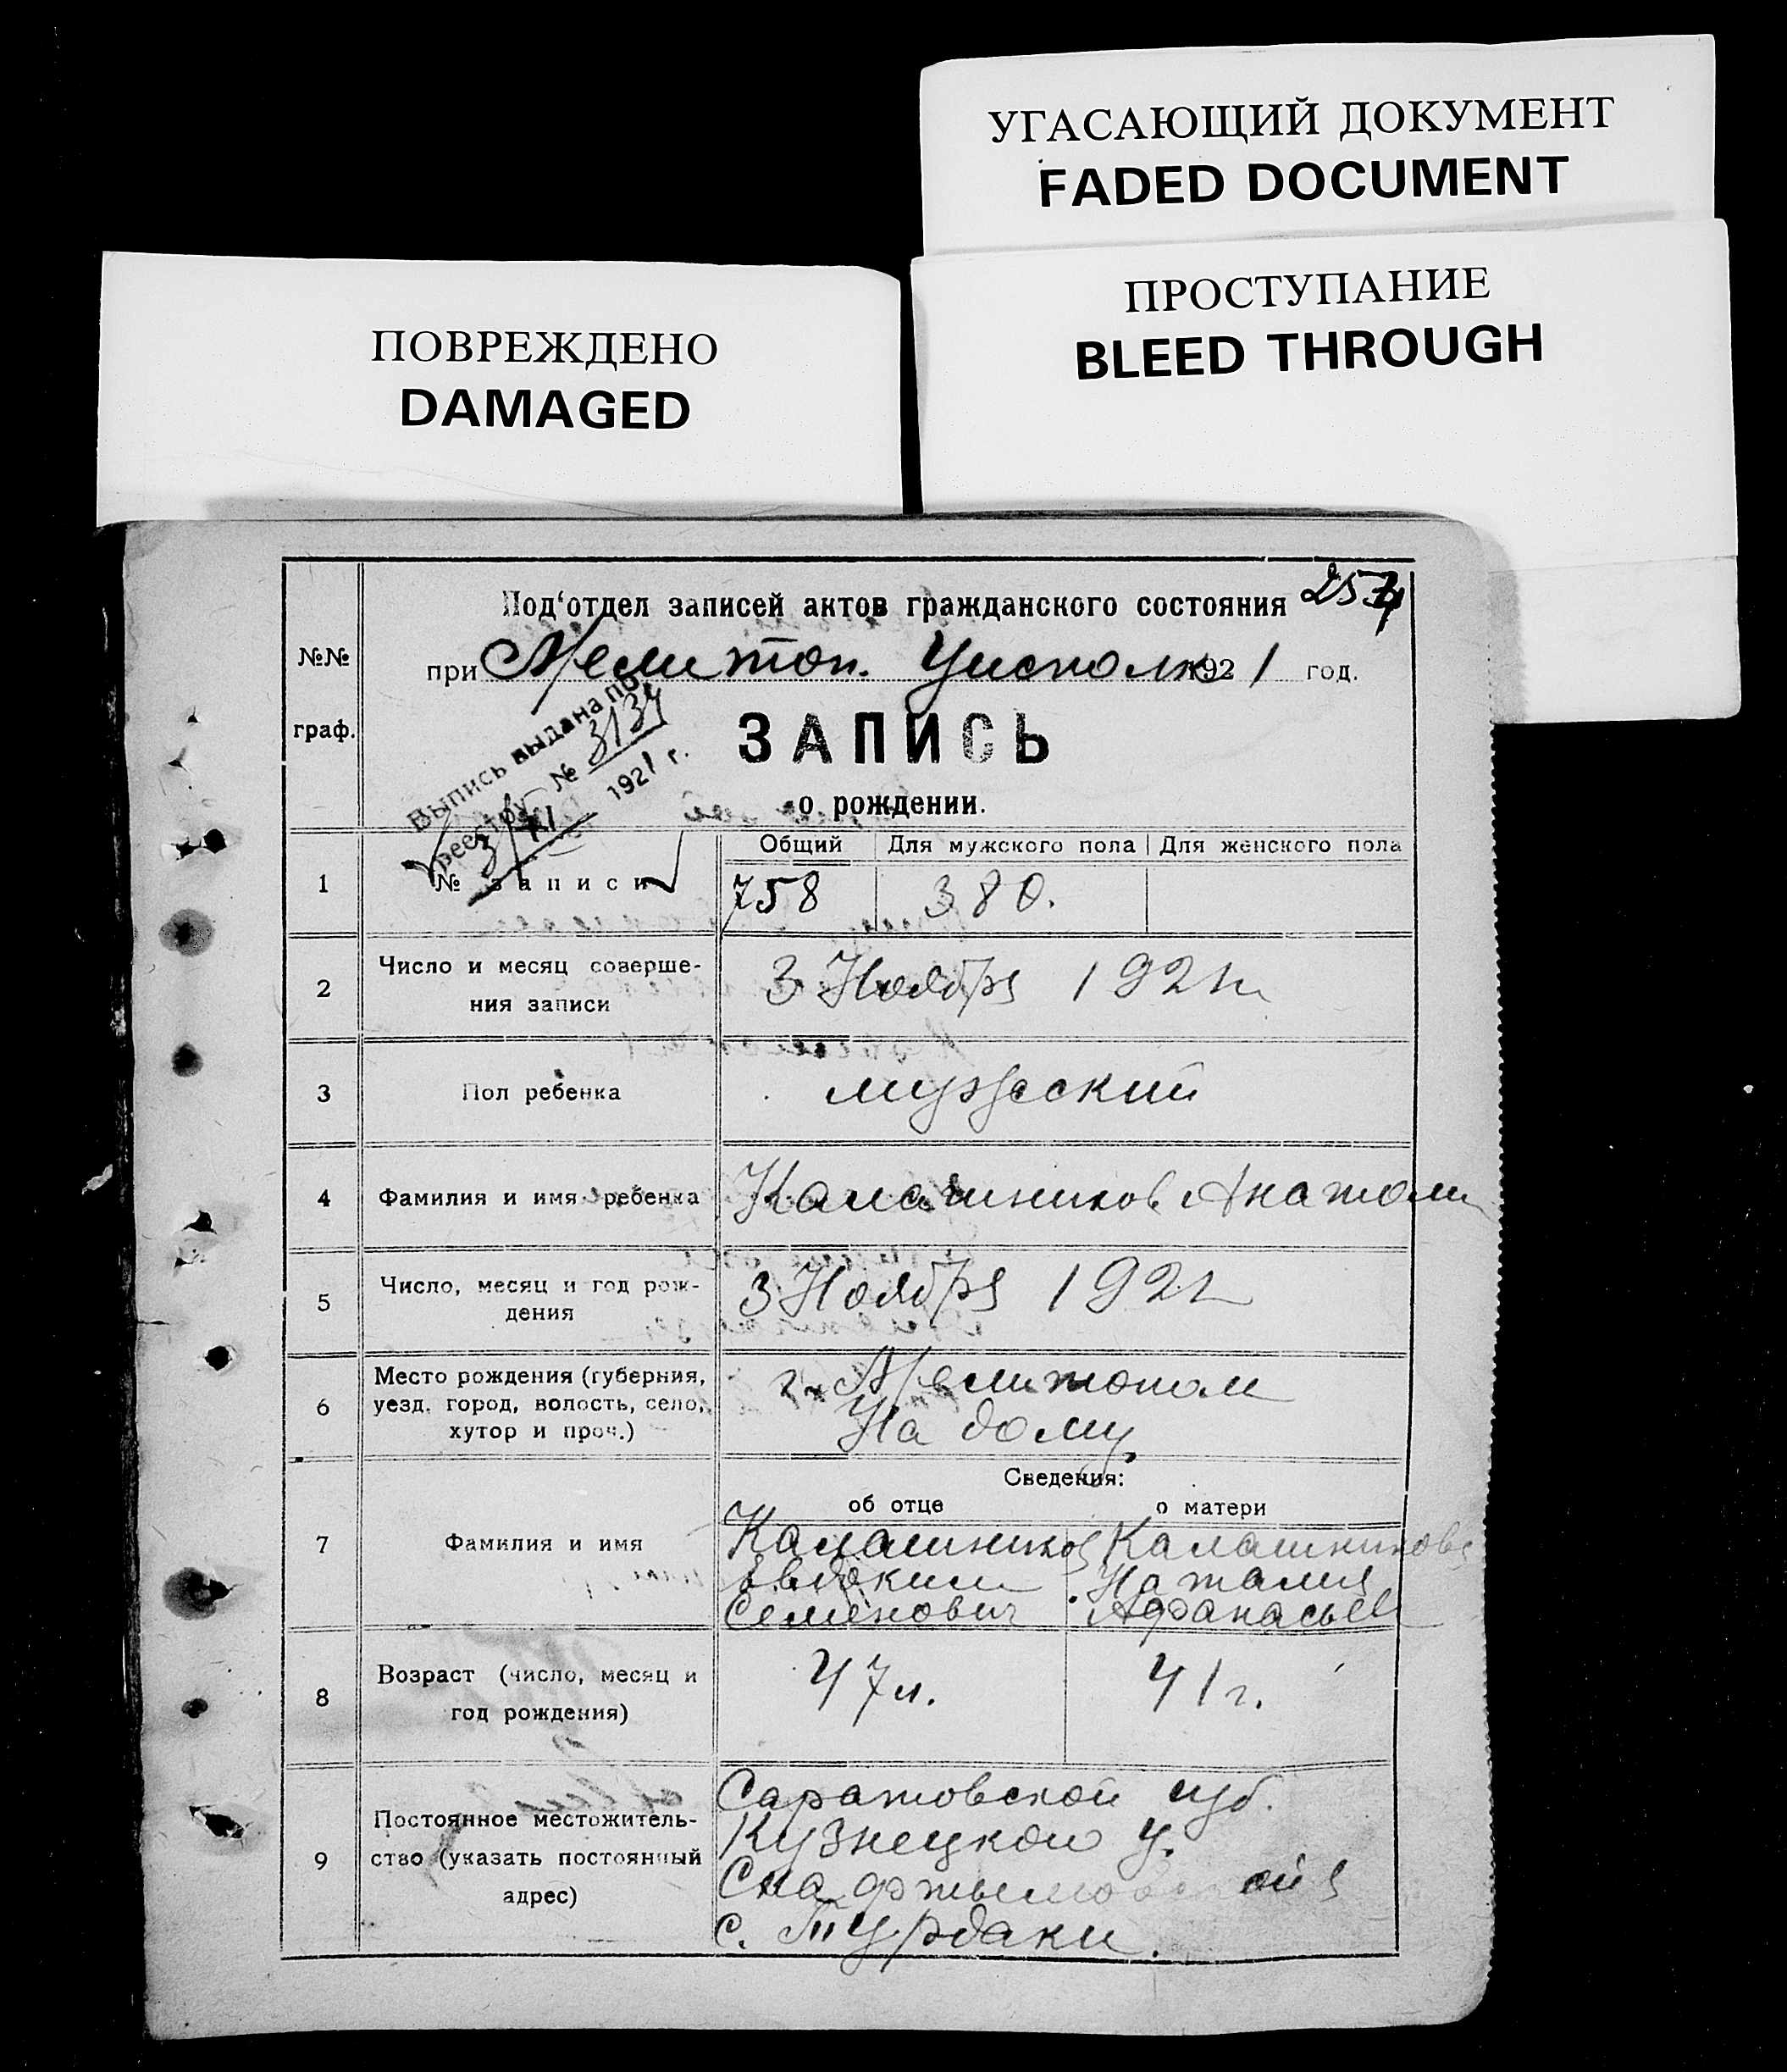 УГАСАЮЩИЙ ДОКУМЕНТ
FADED DOCUMENT
ПРОСТУПАНИЕ
BLEED THROUGH
ПОВРЕЖДЕНО
DAMAGED
Под‘отдел записей актов гражданского состояния
№№ граф.
при Мелитоп. Уисполк. 1921 год.
Выпись выдана по
реестру № 3134
3/XI 1921 г.
ЗАПИСЬ
о рождении.
Общий Для мужского пола Для женского пола
1 № записи 758 380.
2 Число и месяц соверше-
ния записи
3 Ноября 1921 г.
3 Пол ребенка мужеский
4 Фамилия и имя ребенка Калашников Анатолий
5 Число, месяц и год рож-
дения
3 Ноября 1921
6 Место рождения (губерния,
уезд, город, волость, село,
хутор и проч.)
г. Мелитополь
На дому
Сведения:
об отце о матери
7 Фамилия и имя
Калашников
Евдоким
Семенович
Калашникова
Наталия
Афанасьев
8 Возраст (число, месяц и
год рождения)
47 л. 41 г.
9 Постоянное местожитель-
ство (указать постоянный
адрес)
Саратовской губ.
Кузнецкой у.
с. Турдаки.